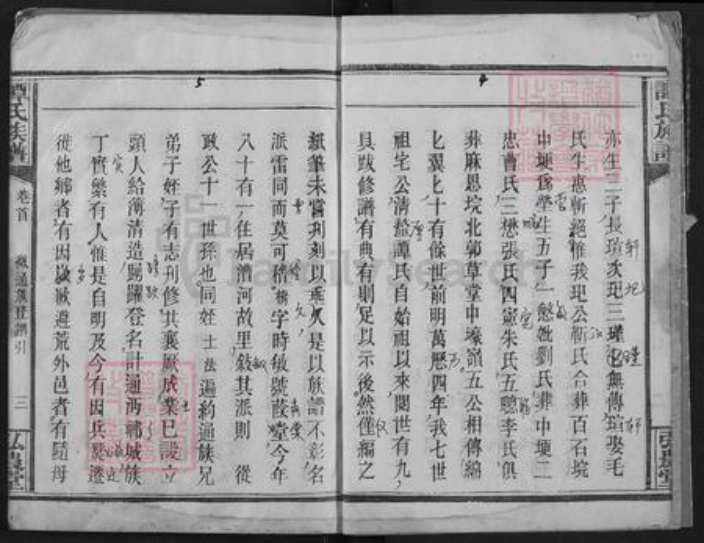 亦生三子長瑄次玘三瑾也無傳瑄娶毛
氏生惠斬絕惟我玘公靳氏合葬百石垸
中埂為塋生五子一慾娶劉氏葬中埂二
忠曹氏三懋張氏四憲朱氏五聰李氏俱
葬麻思垸北郭草堂中壕嶺五公相傳綿
七翼七十有餘世前明萬曆四年我七世
祖宅公清蓋譚氏自始祖以來閱世有九
具跋修譜有典有則足以示後然僅編之
紙筆未嘗刊刻以垂久是以族譜不彰名
派雷同而莫可稽 字時敏號葭堂今年
八十有一住居漕河故里敘其派則從
政公十一世孫也同姪士法遍約通族兄
弟子姪子有志刊修共襄厥成業已設立
頭人給薄清造踴躍登名計通丙 城族
丁實繁有人惟是自明及今有因兵燹遷
徙他鄉者有因 避荒外邑者有隨母
譚氏族譜
卷首
三
弘農堂
5
4